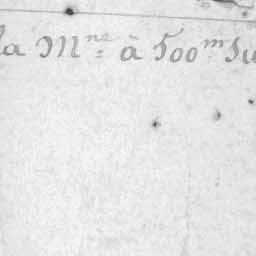 la M^ne à 500^m Su